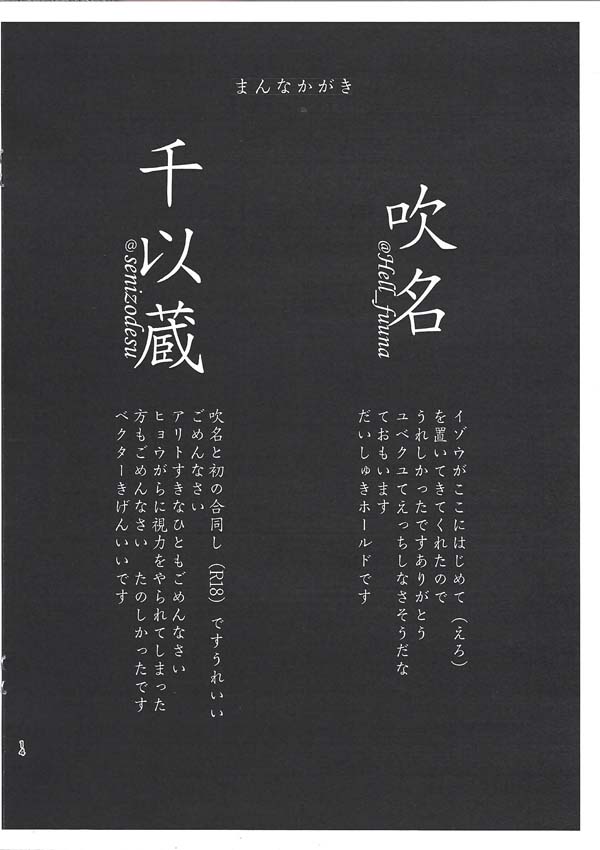 まんなかがき
吹名
@Hell_fuuna
イゾウがここにはじめて（えろ）
を置いてきてくれたので
うれしかったですありがとう
ユベクユてえっちしなさそうだな
ておもいます
だいしゅきホールドです
千以蔵
@senizodesu
吹名と初の合同し（R18）ですうれいい
ごめんなさい
アリトすきなひともごめんなさい
ヒョウがらに視力をやられてしまった
方もごめんなさい　たのしかったです
ベクターきげんいいです